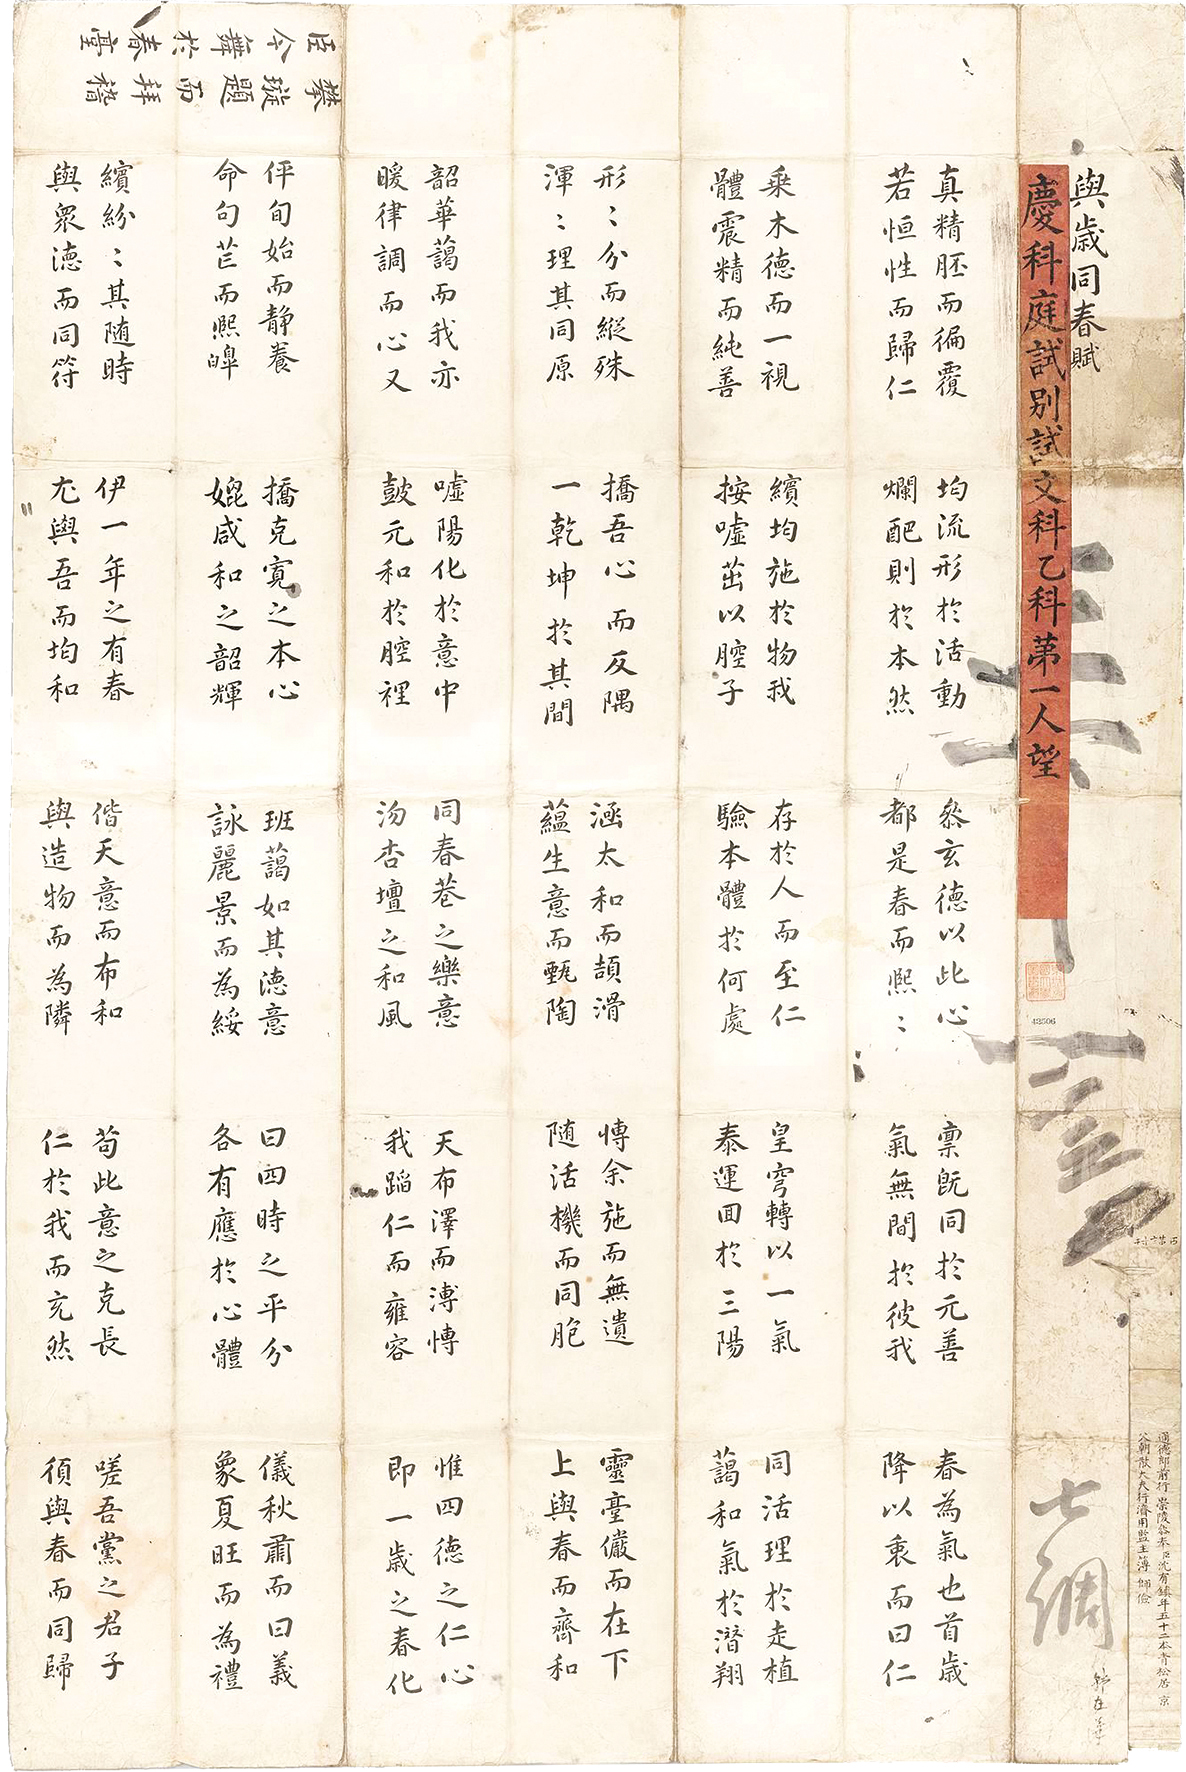 通德郎前行 崇陵叅奉臣沈有鎮年五十二本青松居 京
父朝散大夫行濟用監主簿 師儉
與歲同春賦
慶科庭試別試文科乙科第一人望
43506
真精胚而徧覆 均流形於活動 叅玄德以此心 稟既同於元善 春為氣也首歲
若恒性而歸仁 爛酏則於本然 都是春而熙〻 氣無間於彼我 降以衷而曰仁
乘木德而一視 繽均施於物我 存於人而至仁 皇穹轉以一氣 同活理於走植
體震精而純善 按噓茁以腔子 驗本體於何處 泰運回於三陽 藹和氣於潛翔
形〻分而縱殊 撟吾心而反隅 涵太和而頡滑 慱余施而無遺 靈臺儼而在下
渾〻理其同原 一乾坤於其間 蘊生意而甄陶 随活機而同胞 上與春而齊和
韶華藹而我亦 噓陽化於意中 同春巷之樂意 天布澤而溥慱 惟四德之仁心
暖律調而心又 鼓元和於腔裡 沕杏壇之和風 我蹈仁而雍容 即一歲之春化
伻旬始而静養 撟克寬之本心 班藹如其德意 曰四時之平分 儀秋肅而曰義
命句芒而熙皥 媲咸和之韶輝 詠麗景而為綏 各有應於心體 象夏旺而為禮
繽紛〻其随時 伊一年之有春 偕天意而布和 苟此意之克長 嗟吾黨之君子
與衆德而同符 尤與吾而均和 與造物而為隣 仁於我而充然 須與春而同歸
臣今舞於春臺
攀璇題而拜稽